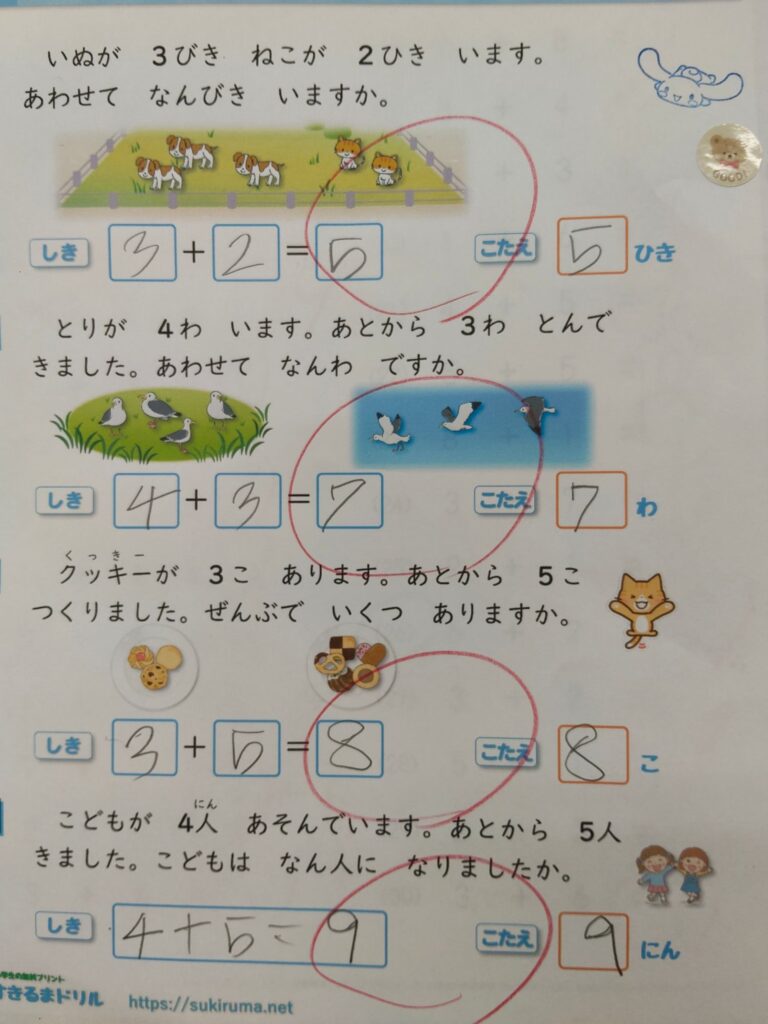 いぬが 3びき ねこが 2ひき います。
あわせて なんびき いますか。
GOOD!
しき 3 + 2 = 5 こたえ 5 ひき
とりが 4わ います。あとから 3わ とんで
きました。あわせて なんわ ですか。
しき 4 + 3 = 7 こたえ 7 わ
くっきー
クッキーが 3こ あります。あとから 5こ
つくりました。ぜんぶで いくつ ありますか。
しき 3 + 5 = 8 こたえ 8 こ
にん
こどもが 4人 あそんでいます。あとから 5人
きました。こどもは なん人に なりましたか。
しき 4+5=9 こたえ 9 にん
学生の無料プリント
すきるまドリル https://sukiruma.net